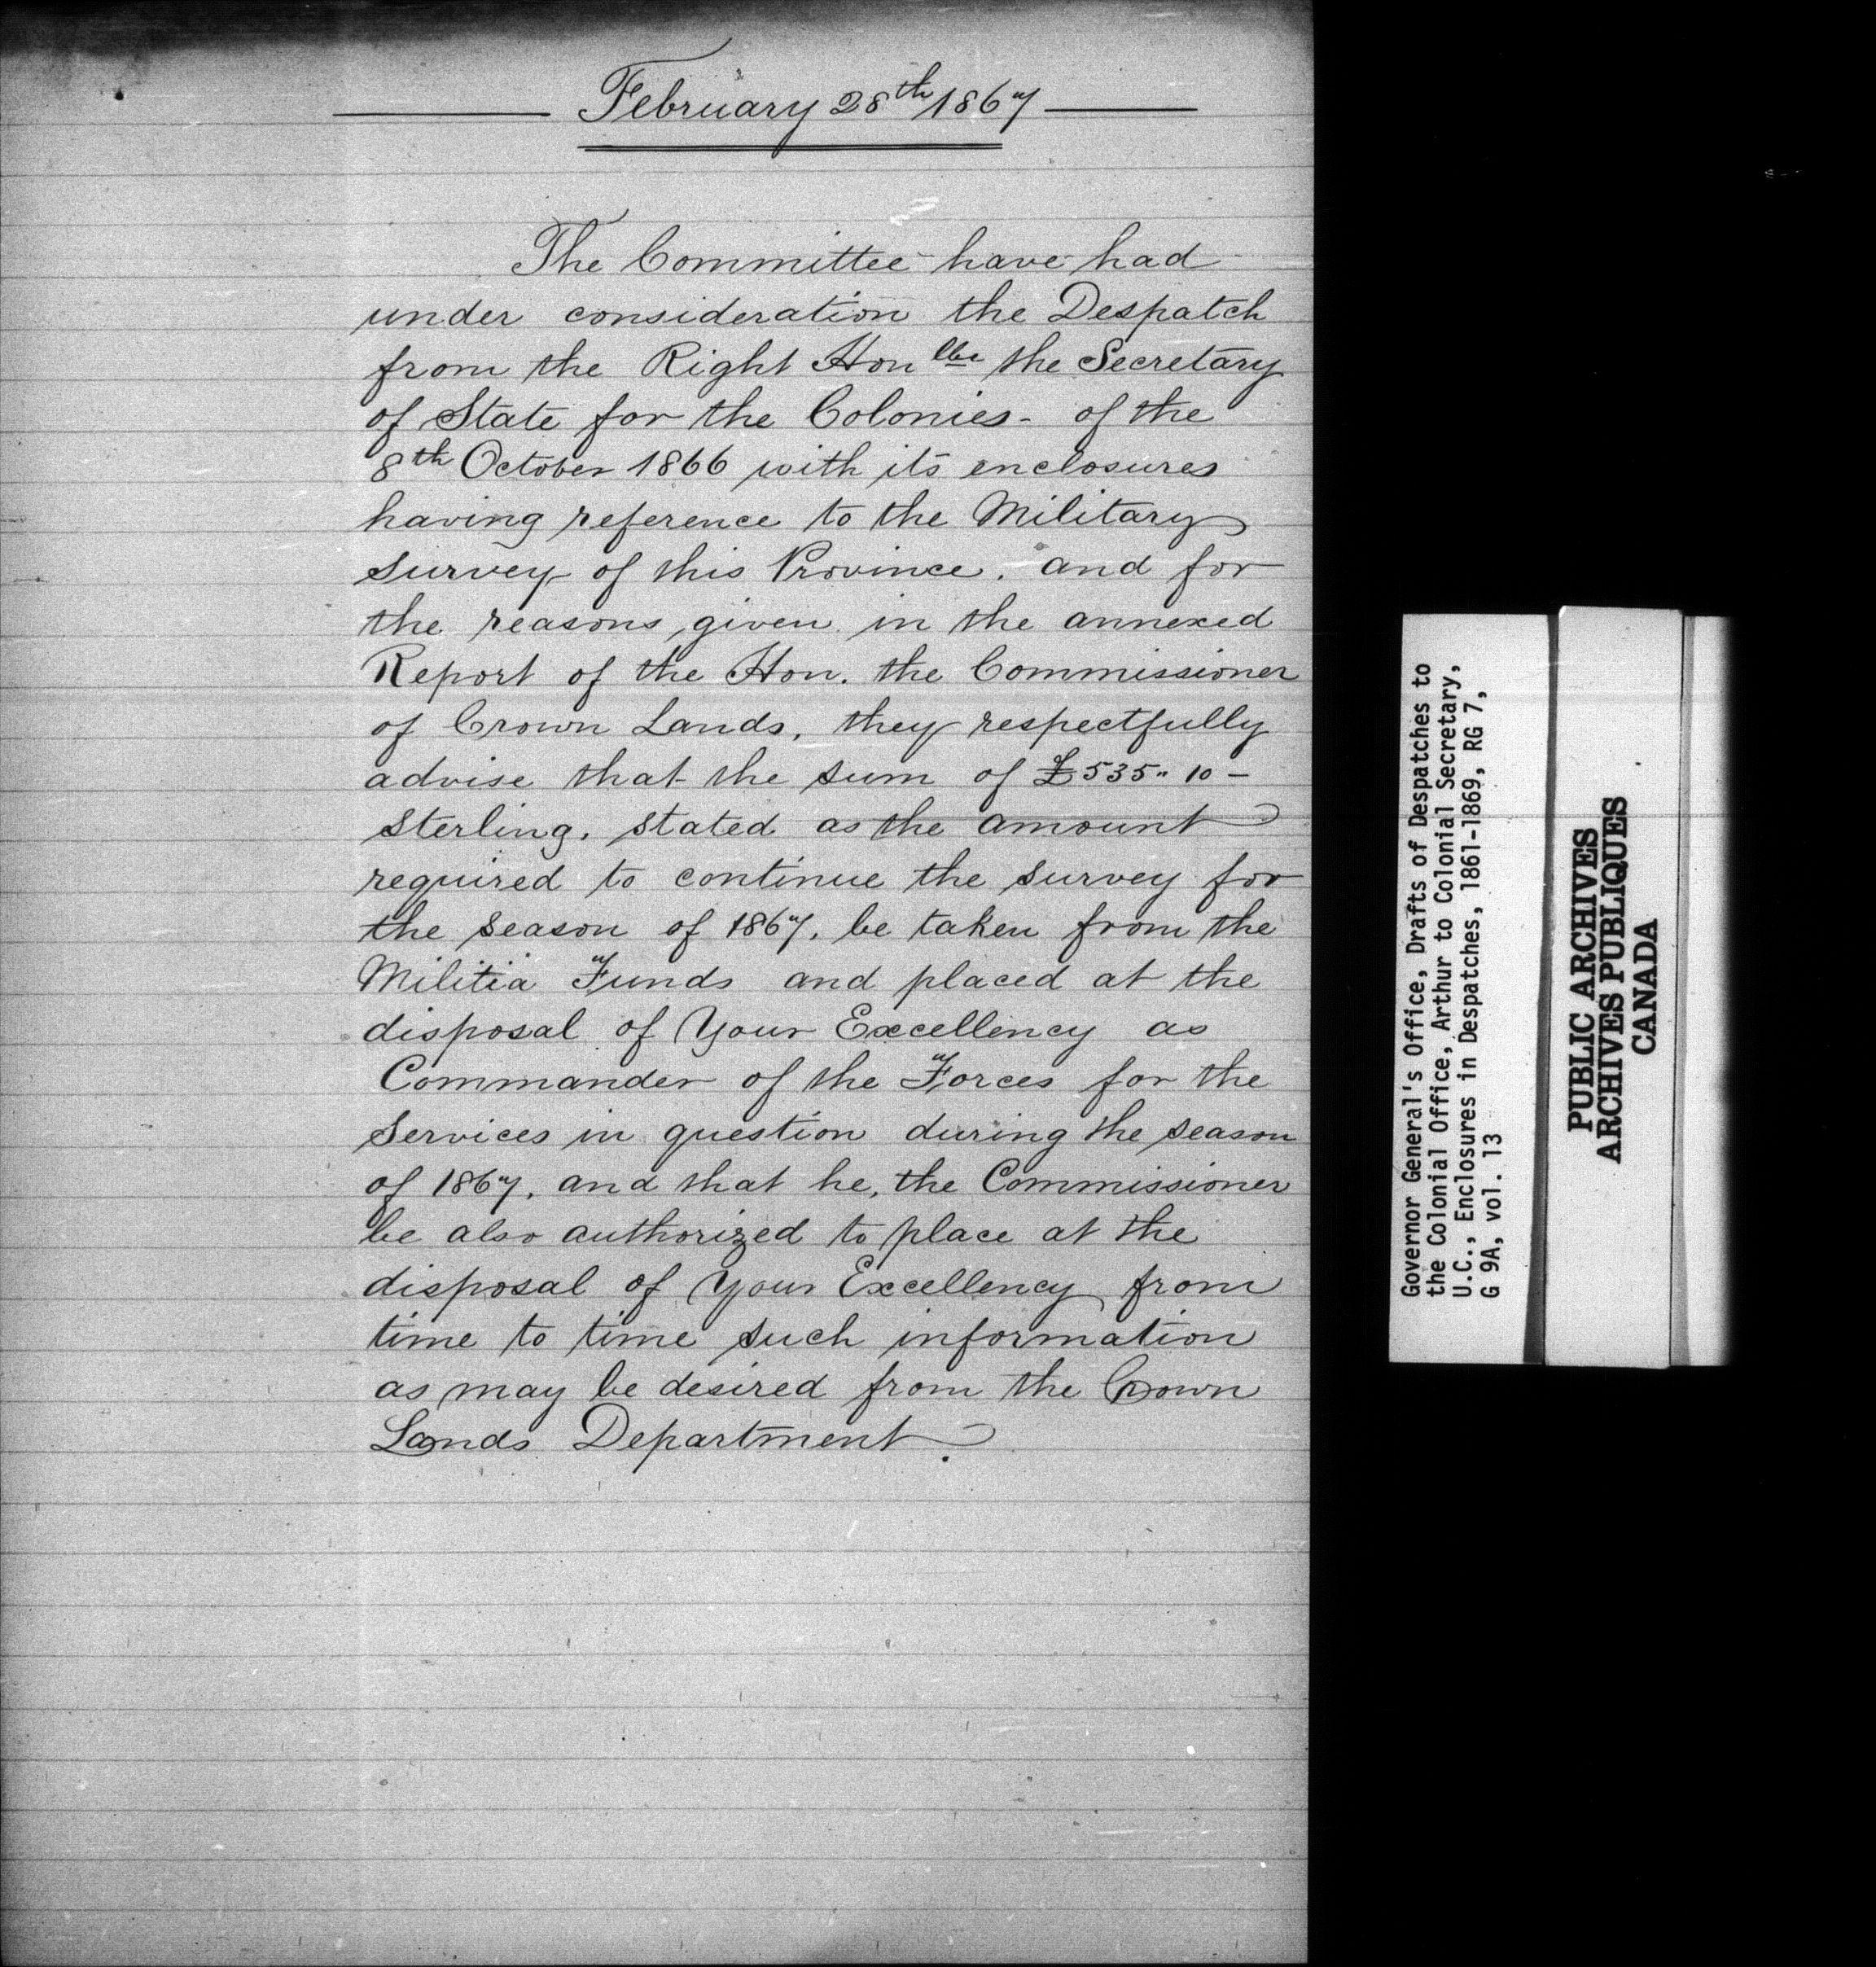 February 28th 1867
The Committee have had
under consideration the Despatch
from the Right Honble the Secretary
of State for the Colonies - of the
8th October 1866 with its enclosures
having reference to the Military
survey of this Province. and for
the reasons given in the annexed
Report of the Hon. the Commissioner
of Crown Lands, they respectfully
advise that the sum of £535" 10 -
Sterling, stated as the amount
required to continue the survey for
the season of 1867, be taken from the
Militia Funds and placed at the
disposal of Your Excellency as
Commander of the Forces for the
Services in question during the season
of 1867, and that he, the Commissioner
be also authorized to place at the
disposal of Your Excellency from
time to time such information
as may be desired from the Crown
Lands Department.
Governor General's Office, Drafts of Despatches to
the Colonial Office, Arthur to Colonial Secretary,
U.C., Enclosures in Despatches, 1861-1869, RG 7,
G 9A, vol. 13
PUBLIC ARCHIVES
ARCHIVES PUBLIQUES
CANADA